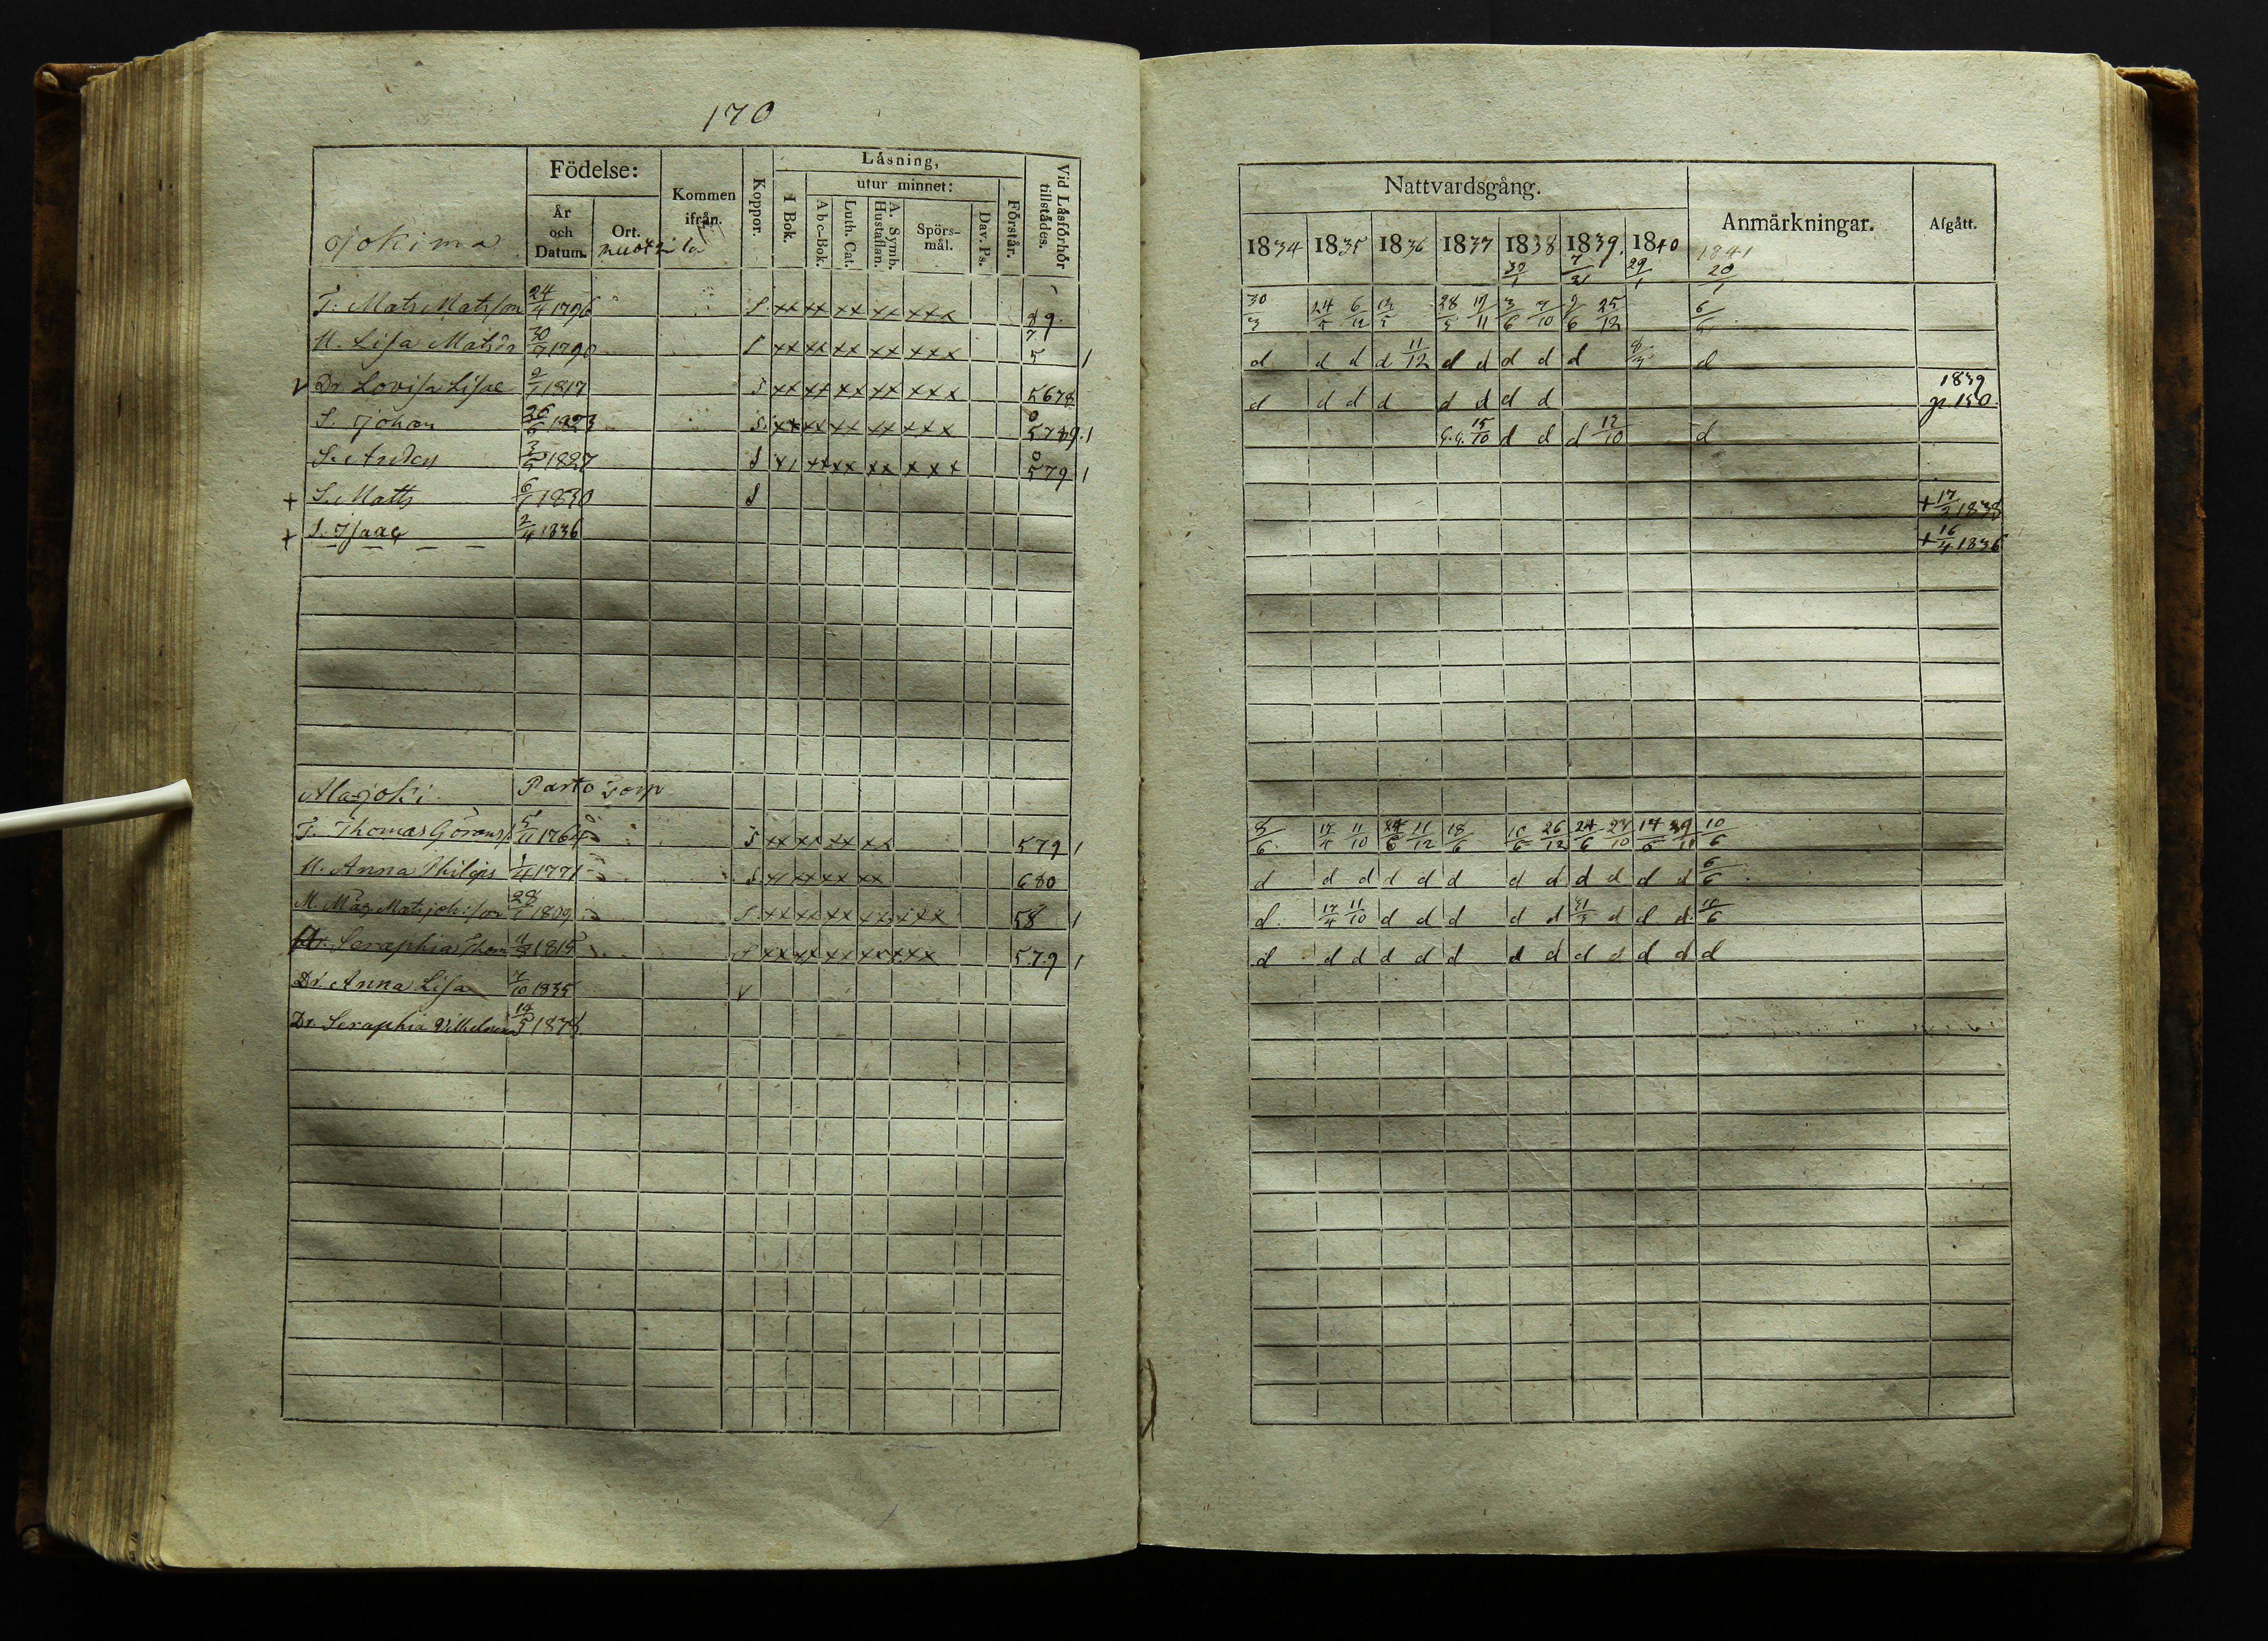 170
Födelse:
Låsning,
utur minnet:
Kommen ifrån.
Koppor.
I Bok.
Abc-Bok.
Luth. Cat.
A. Symb. Hustaflan.
Spörs-mål.
Dav. Ps.
Förstår.
Vid Låsförhör tillstådes.
År och Datum.
Ort.
Ojokima
T. Mats Matsson 24/4 1796 S. xx xx xx xx xxx 89
M. Lisa Matsdr 30/7 1790 S xx xx xx xx xxx 5 1
Dr. Lovisa Lisae 2/1 1817 S xx xx xx xx xxx 5678
S. Johan 26/6 1823 S. xx xx xx xx xxx
S. Anders 1827 S xx xx xx xxx 579 1
+ S. Matts 6/1 1830 S
+ S. Isaac 2/4 1836
Alajoki Parto Torp
T. Thomas Göranss. 5/11 1764 S xx xx xx xx 579 1
H. Anna Philips 1/4 1771 S xx xx xx 680
M. Måg. Mats 28/1 1809 S. xx xx xx xx xxx 58 1
Dr. Seraphia Thom 1815 S xx xx xx xx xxx 579 1
Dr. Anna Lisa 7/10 1835 v
Dr. Seraphia Vilhelmina 14/5 1838
Nattvardsgång.
Anmärkningar.
Afgått.
1834 1835 1836 1837 1838 1839 1840 1841
30/1 29/1 20/1
30/3 24/5 6/12 28/5 12/11 3/6 7/10 25/12 6/6
d d d d 11/12 d d d d d d
d d d d d d d d 1839 p. 150.
15/10 d d d 12/10 d
+ 17/2 1838
+ 16/4 1836
8/6 17/4 11/10 24/6 11/12 18/6 10/6 26/12 24/6 27/10 14/6 10/6
d d d d d d d d d d d d 6/6
d. 17/4 11/10 d d d d d d d d. 10/6
d d d d d d d d d d d d d